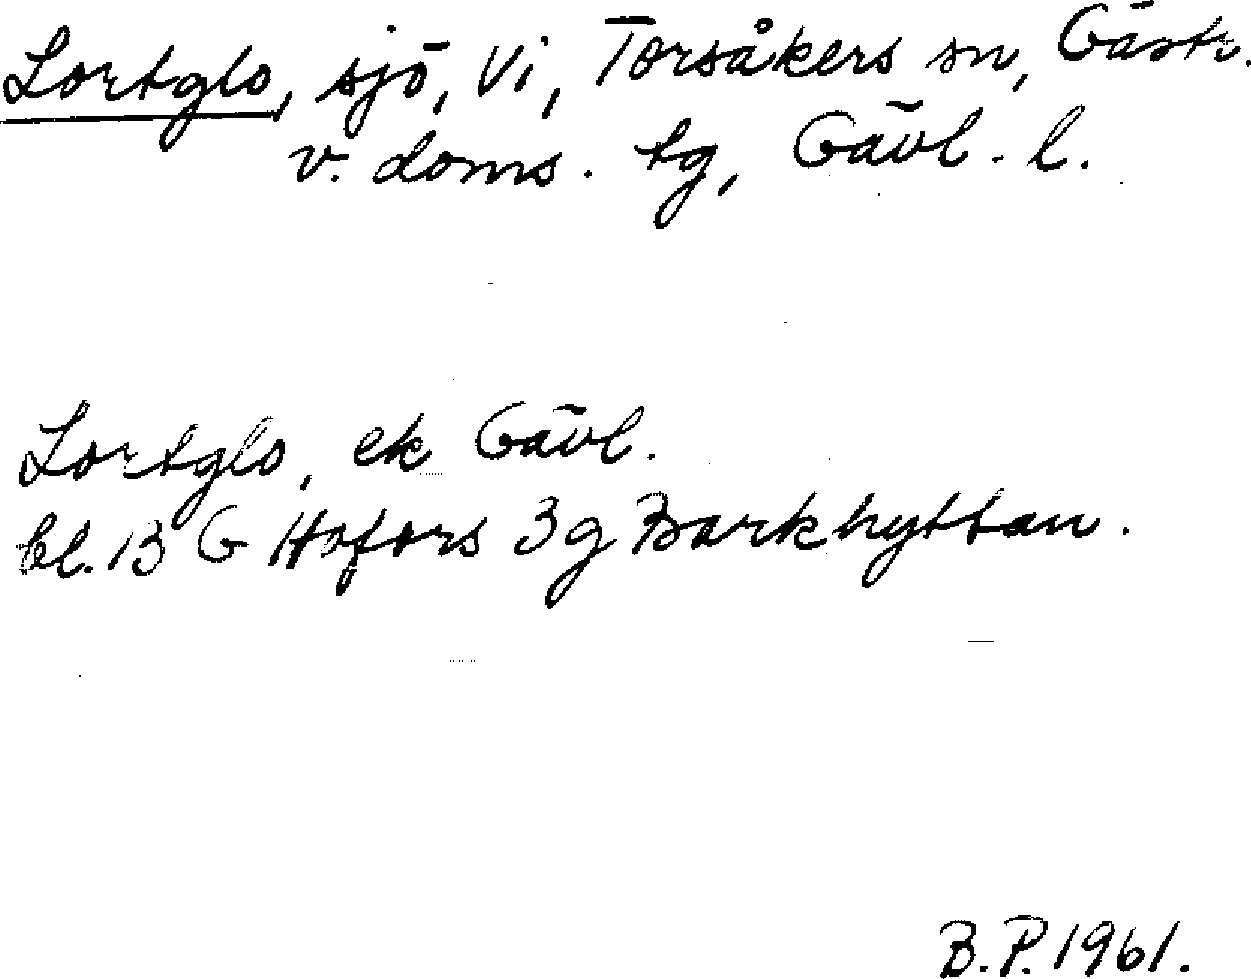 Lortglo, sjö, Vi, Torsåkers sn, Gästr.
v. doms. tg, Gävl. l.
Lortglo, ek Gävl.
bl. 13 G Hofors 3g Barkhyttan.
B.P. 1961.